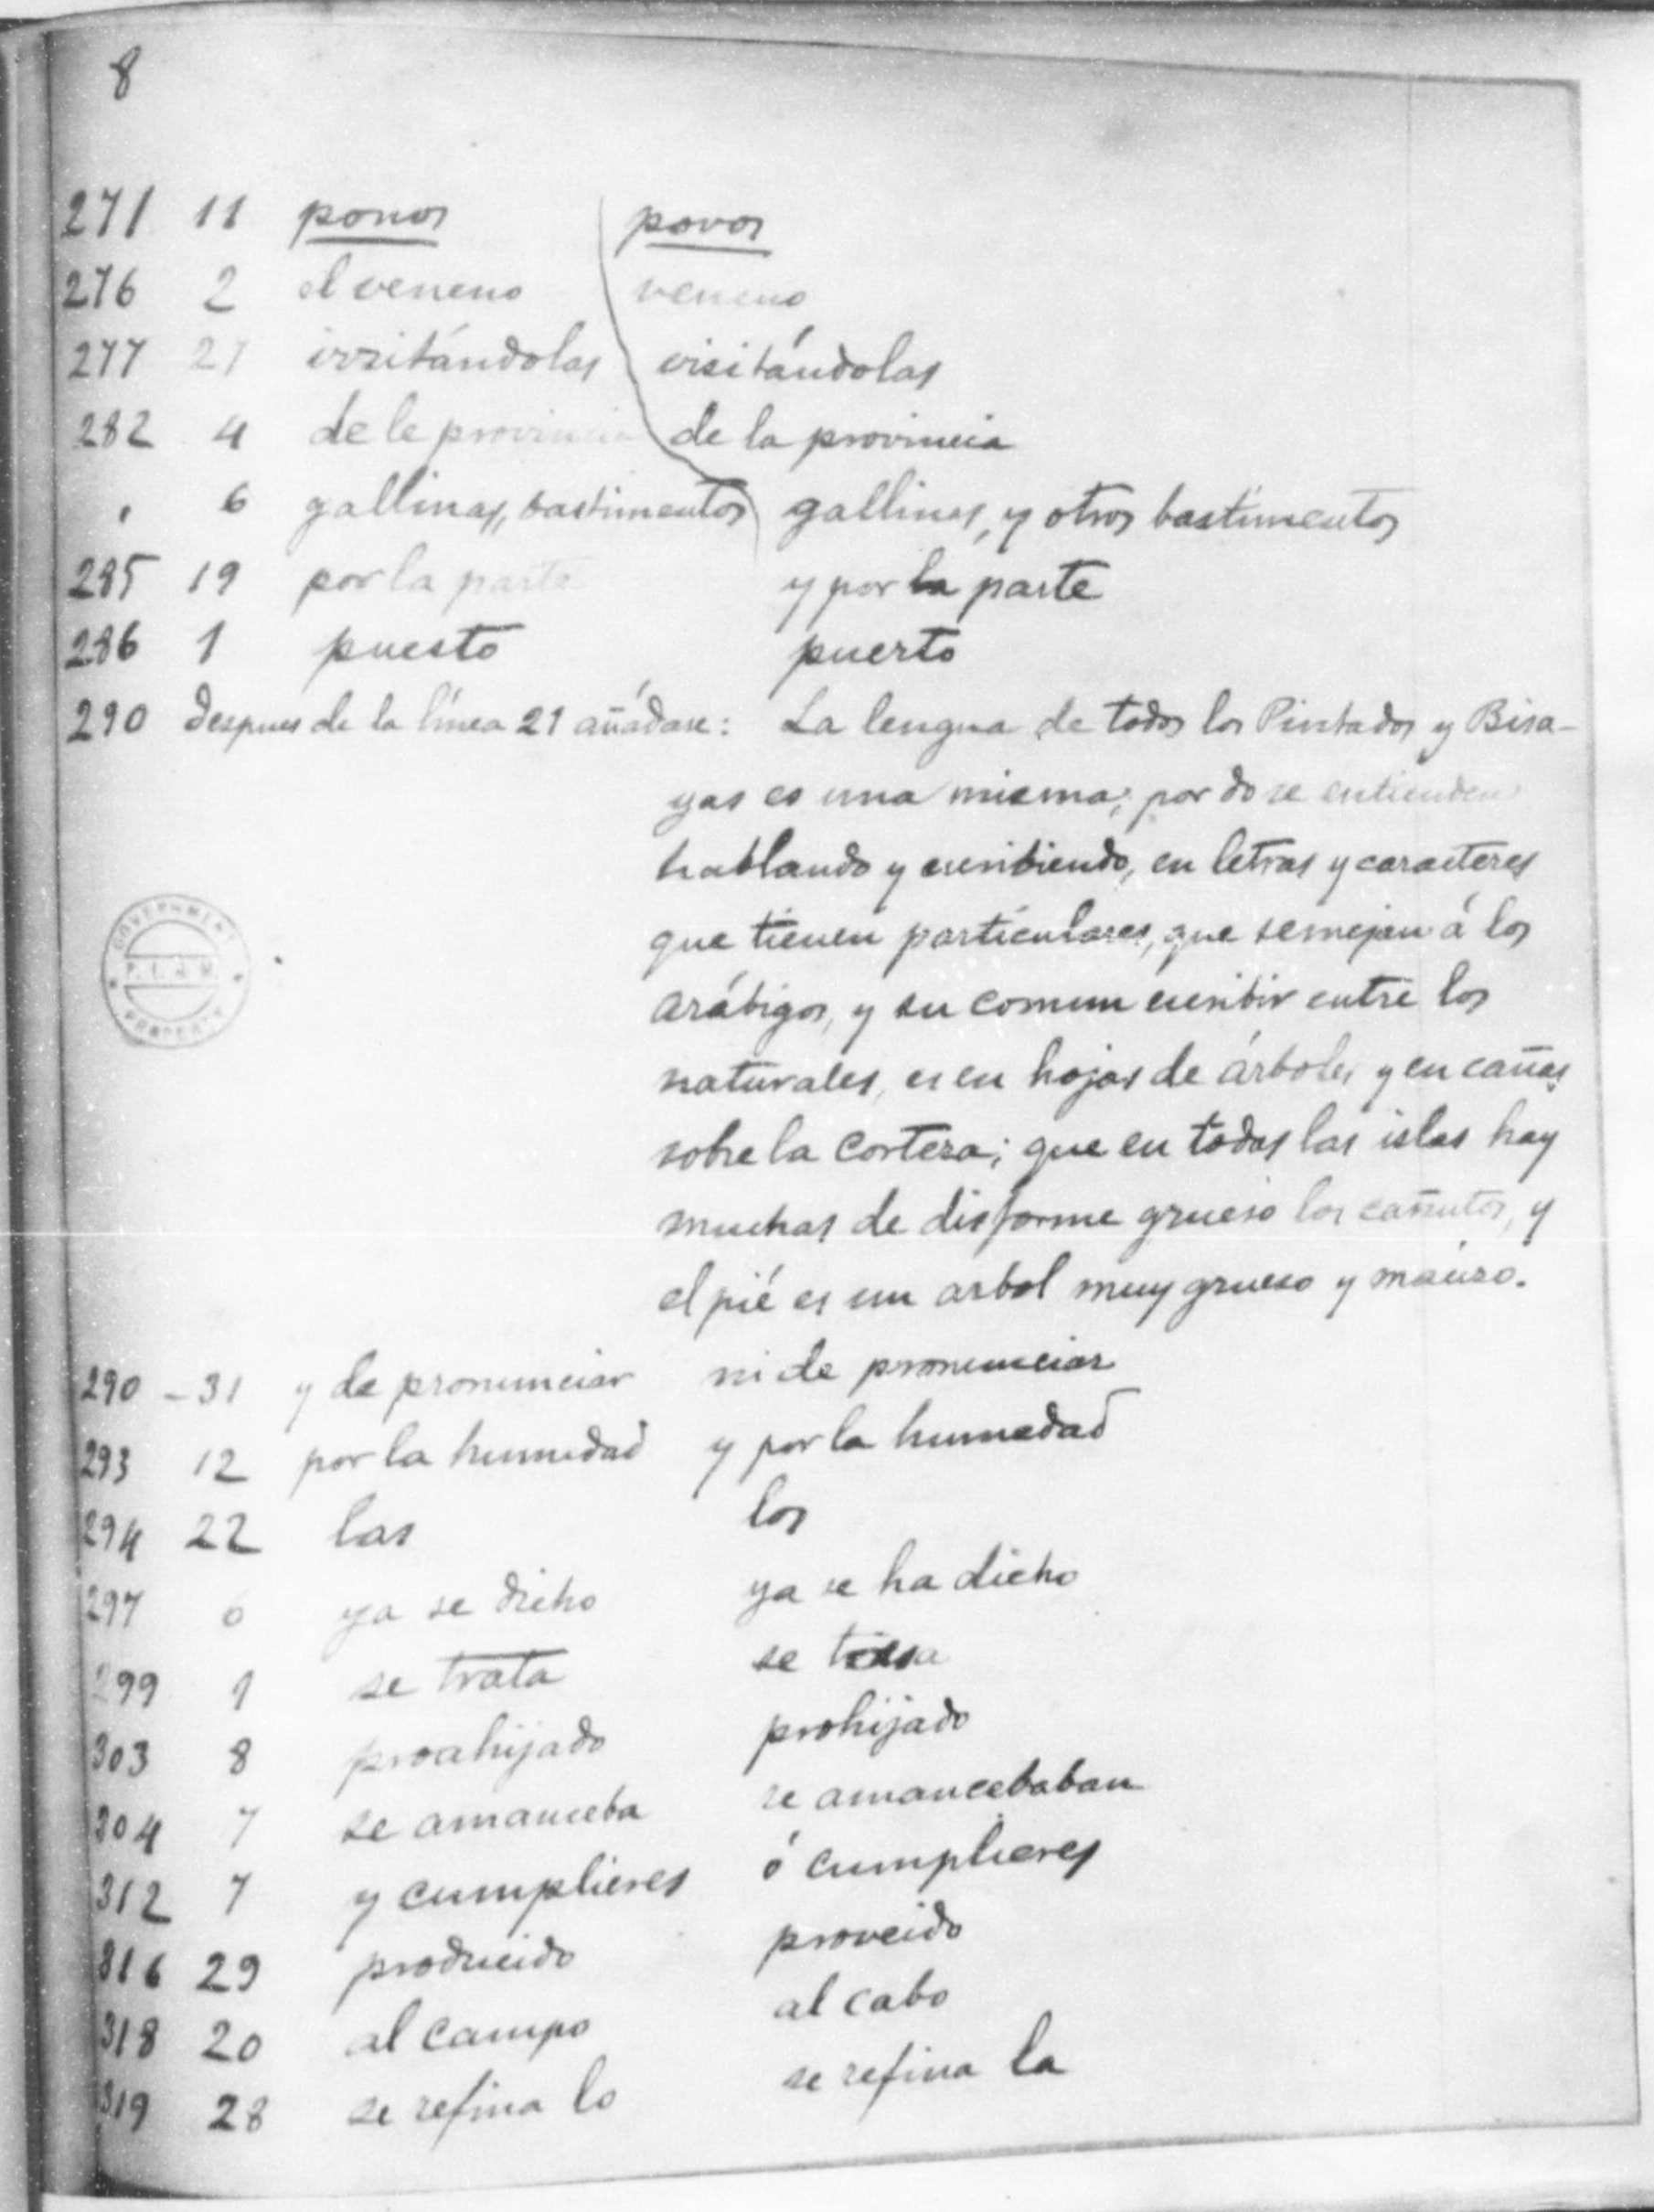 8
271 11 ponos povos
276 2 el veneno veneno
277 27 irritándolas visitándolas
282 4 de le provincia de la provincia
" 6 gallinas, bastimentos gallinas, y otros bastimentos
285 19 por la parte y por la parte
286 1 puesto puerto
290 despues de la línea 21 añádase: La lengua de todos los Pintados y Bisa-
yas es una misma; por do se entienden
hablando y escribiendo, en letras y caracteres
que tienen particulares, que semejan á los
arábigos, y su comun escribir entre los
naturales, es en hojas de árboles y en cañas
sobre la corteza; que en todas las islas hay
muchas de disforme grueso los cañutos, y
el pié es un arbol muy grueso y macizo.
290 - 31 y de pronunciar ni de pronunciar
293 12 por la humedad y por la humedad
294 22 las los
297 6 ya se dicho ya se ha dicho
299 1 se trata se
303 8 proahijado prohijado
304 7 se amanceba se amancebaban
312 7 y cumplieres ó cumplieres
316 29 producido proveido
318 20 al campo al cabo
319 28 se refina lo se refina la
GOVERNMENT
PROPERTY